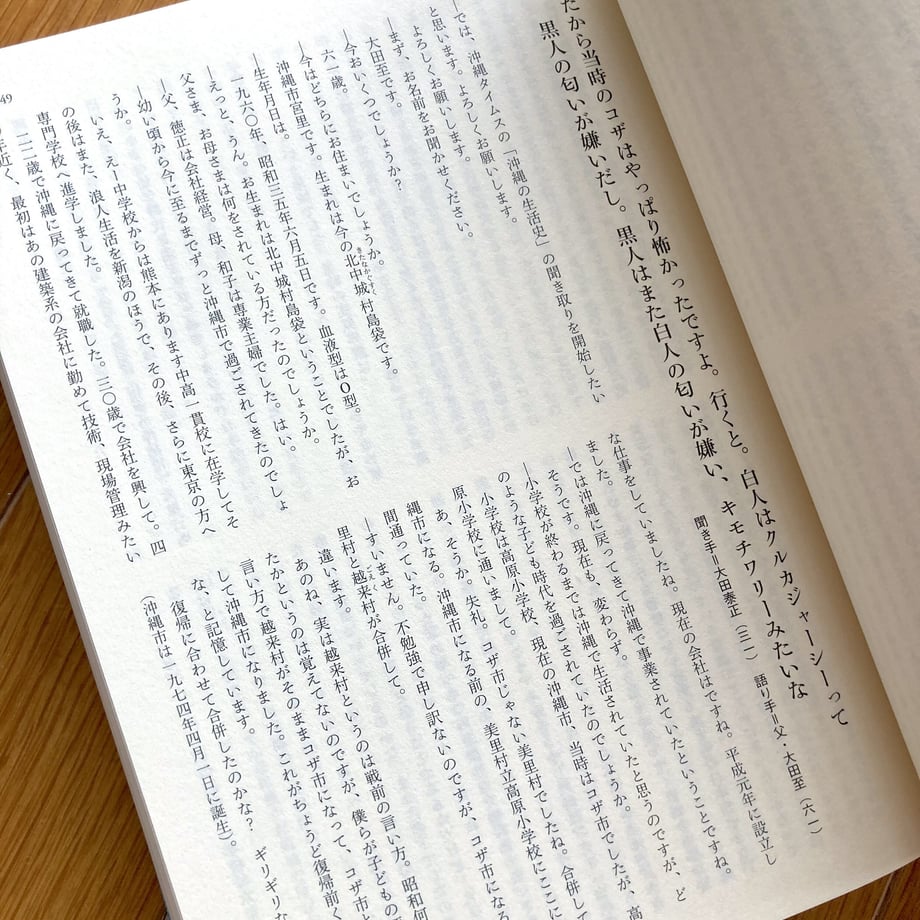 だから当時のコザはやっぱり怖かったですよ。行くと。白人はクルカジャーシーって
黒人の匂いが嫌いだし。黒人はまた白人の匂いが嫌い、キモチワリーみたいな
聞き手=大田泰正(三一) 語り手=父・大田至(六一)
―では、沖縄タイムスの「沖縄の生活史」の聞き取りを開始したい
と思います。よろしくお願いします。
よろしくお願いします。
―まず、お名前をお聞かせください。
大田至です。
―今おいくつでしょうか?
六一歳。
―今はどちらにお住まいでしょうか。
沖縄市宮里です。生まれは今の北中城村島袋です。
きたなかぐすく
―生年月日は。
一九六〇年、昭和三五年六月五日です。血液型はO型。
―えっと、うん。お生まれは北中城村島袋ということでしたが、お
父さま、お母さまは何をされている方だったのでしょうか。
父、徳正は会社経営。母、和子は専業主婦でした。はい。
―幼い頃から今に至るまでずっと沖縄市で過ごされてきたのでしょ
うか。
いえ、えー中学校からは熊本にあります中高一貫校に在学してそ
の後はまた、浪人生活を新潟のほうで、その後、さらに東京の方へ
専門学校へ進学しました。
二二歳で沖縄に戻ってきて就職した。三〇歳で会社を興して。四
年近く、最初はあの建築系の会社に勤めて技術、現場管理みたい
な仕事をしていましたね。現在の会社はですね。平成元年に設立し
ました。
―では沖縄に戻ってきて沖縄で事業されていたということですね。
そうです。現在も、変わらず。
―小学校が終わるまでは沖縄で生活されていたと思うのですが、ど
のような子ども時代を過ごされていたのでしょうか。
小学校は高原小学校、現在の沖縄市、当時はコザ市でしたが、高
原小学校に通いまして。
あ、そうか。失礼。コザ市じゃない美里村でしたね。合併して
沖縄市になる。沖縄市になる前の、美里村立高原小学校にここに
間通っていた。
―すいません。不勉強で申し訳ないのですが、コザ市になる
里村と越来村が合併して。
ごえく
違います。
あのね、実は越来村というのは戦前の言い方。昭和何
たかというのは覚えてないのですが、僕らが子どもの
言い方で越来村がそのままコザ市になって、コザ市と
して沖縄市になりました。これがちょうど復帰前く
な、と記憶しています。
復帰に合わせて合併したのかな? ギリギリな
(沖縄市は一九七四年四月一日に誕生)。
49